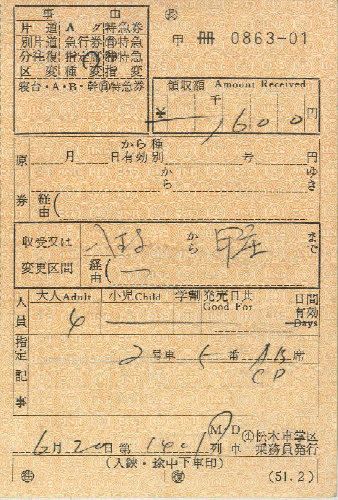 事 由
片道 A グ 特急券
別片道 急行券 特急
分往復 指定席 特急
区 変 種 変 指 変
寝台・A・B・幹 特急券
甲 冊 0863-01
領収額 Amount Received
千 円
¥ 1600
原券
月 日 から有効 種別 号 円
から ゆき
経由(
収受又は変更区間
から まで
経由(
人員
大人Adult 小児Child 学割 発売日共 Good For 日間有効 Days
4
指定
2 号車 5 番 AB 席
CD
記事
6月20日 第 1401 M/D 列車 松本車掌区乗務員発行
(入鋏・途中下車印) (51.2)